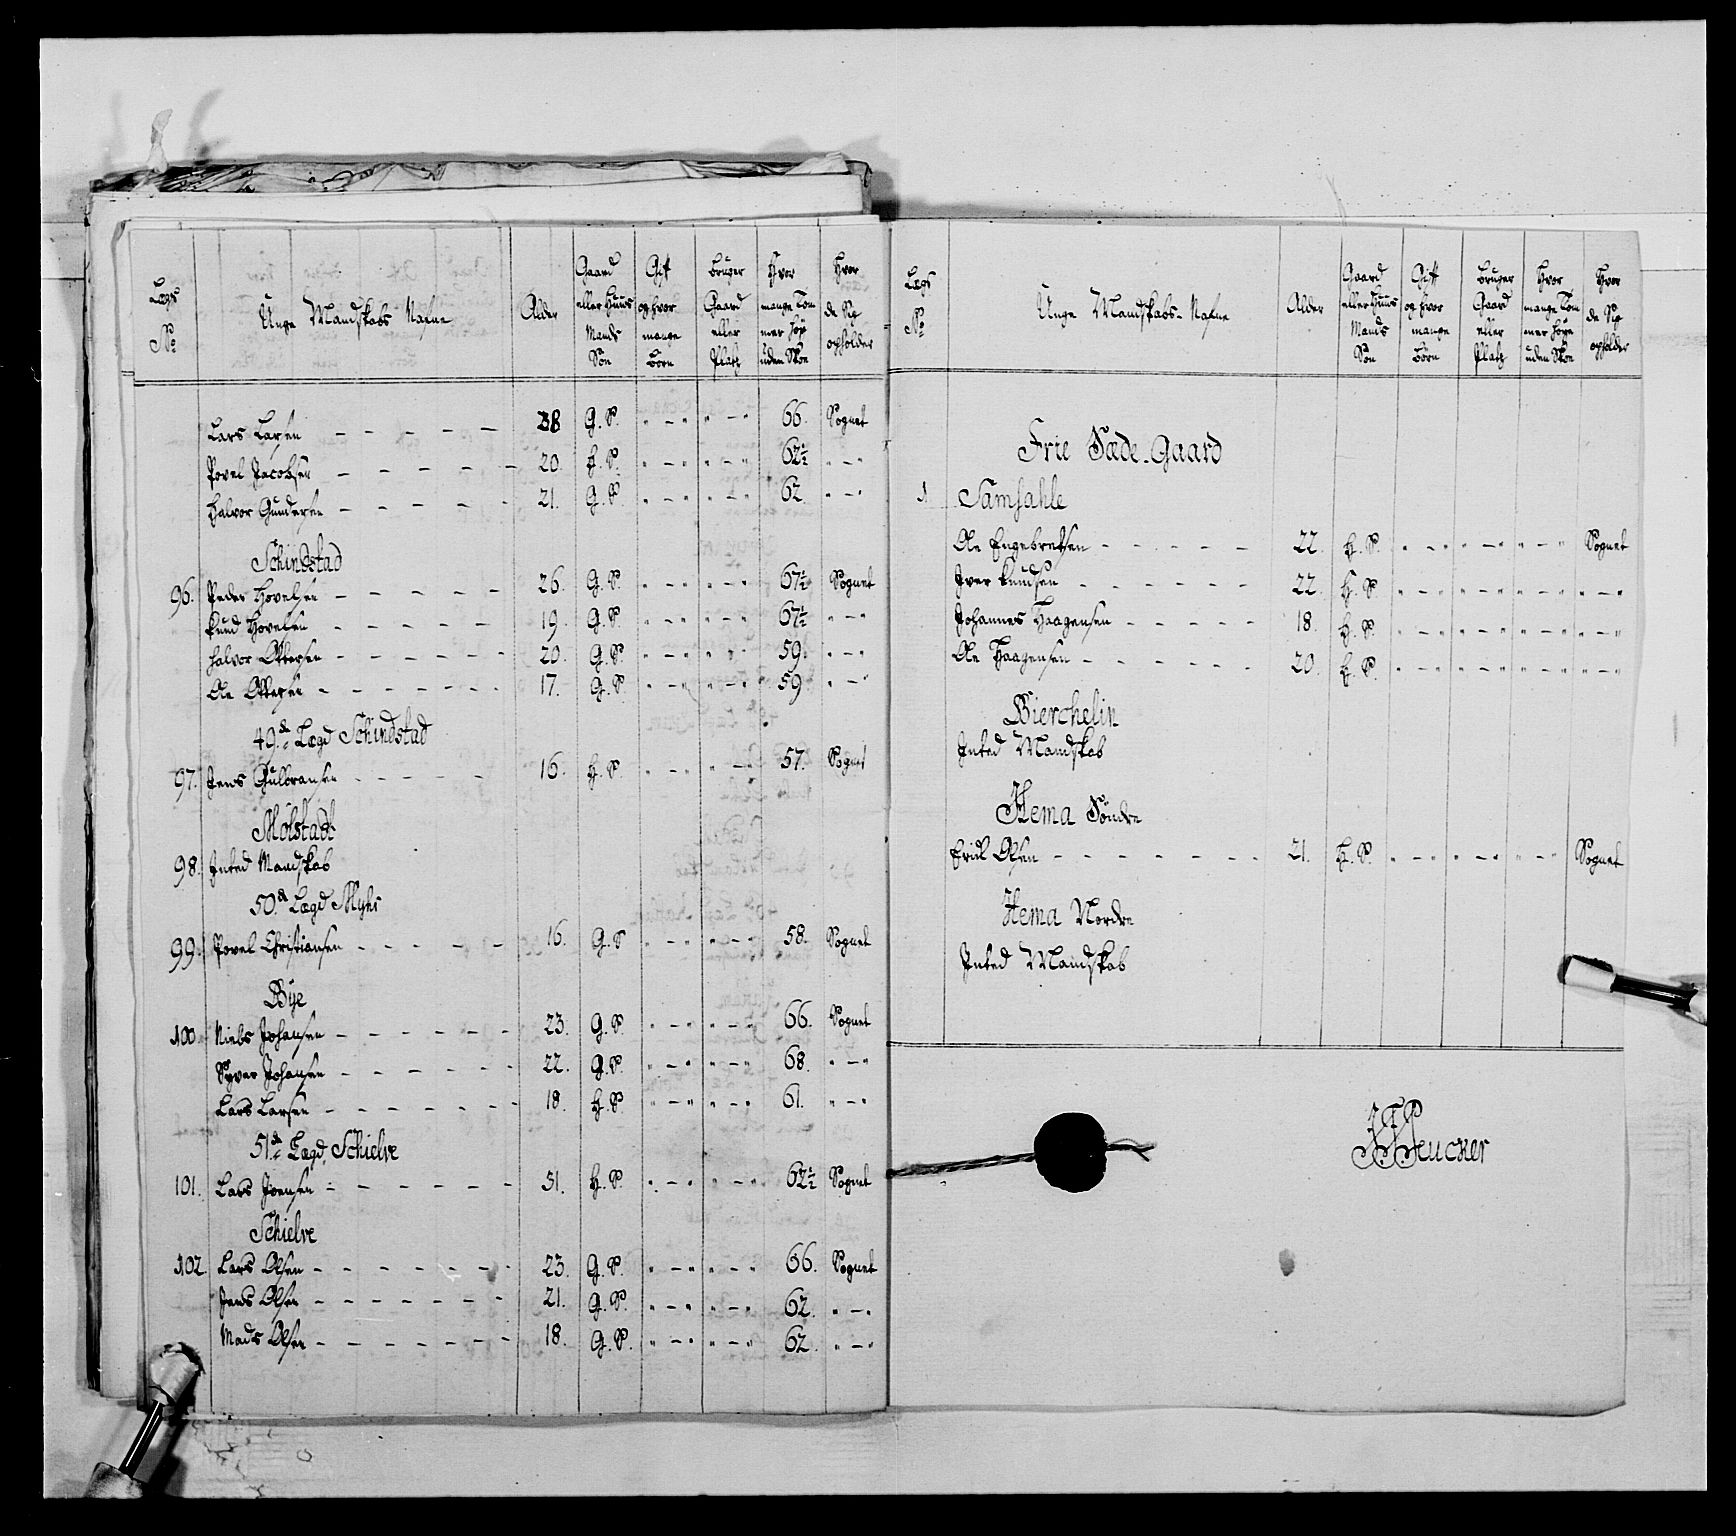 Lægs No | Unge Mandskabs Nafne | Alder | Gaard eller Huus Mands Søn | Gift og hvor mange Børn | bruger Gaard eller Platz | Hvor mange Tommer høy uden Skoe | Hvor de Sig opholder
Lars Larsen - - - - - 38 G. S. " - " " - " 66. Sognet
Povel Jacobsen - - - - - 20. H. S. " - " " - " 62½ " - "
Halvor Gundersen - - - - 21. G. S. " - " " - " 62 " - "
Schindstad
96. Peder Hovelsen - - - - - 26. G. S. " - " " - " 67½ Sognet
Knud Hovelsen - - - - - 19. G. S. " - " " - " 67½ " - "
Halvor Ottersen - - - - - 20. G. S. " - " " - " 59. " - "
Ole Ottersen - - - - - - 17. G. S. " - " " - " 59 " - "
49de Lægd Schindstad
97. Jens Gulbransen - - - - - 16. H. S. " - " " - " 57. Sognet
Molstad
98. Inted Mandskab
50de Lægd Myhr
99. Povel Christiansen - - - - - 16. G. S " - " " - " 58. Sognet
Bye
100. Niels Johansen - - - - - 23. G. S. " - " " - " 66. Sognet
Syver Johansen - - - - - - 22. G. S. " - " " - " 68. " - "
Lars Larsen - - - - - - - 18. H. S. " - " " - " 61. " - "
51de Lægd Schielve
101. Lars Joensen - - - - - - 31. H. S. " - " " - " 62½ Sognet
Schielve
102. Lars Olsen - - - - - - - 23. G. S. " - " " - " 66. Sognet
Jens Olsen - - - - - - - 21. G. S. " - " " - " 62. " - "
Mads Olsen - - - - - - - 18. G. S. " - " " - " 62 " - "
Lægs No | Unge Mandskabs Nafne | Alder | Gaard eller Huus Mands Søn | Gift og hvor mange Børn | bruger Gaard eller Platz | Hvor mange Tommer høye uden Skoe | Hvor de Sig opholder
Frie Sæde-Gaard
1 Samsahle
Ole Engebretsen - - - - - 22. H. S. " - " " - " " - " Sognet
Iver Knudsen - - - - - - 22. H. S " - " " - " " - " " - "
Johannes Haagensen - - - - - 18. H. S. " - " " - " " - " " - "
Ole Haagensen - - - - - - 20. H. S. " - " " - " " - " " - "
Bierchelin
Inted Mandskab
Hema Søndre
Erick Olsen - - - - - - - 21. H. S. " - " " - " " - " Sognet
Hema Nordre
Inted Mandskab